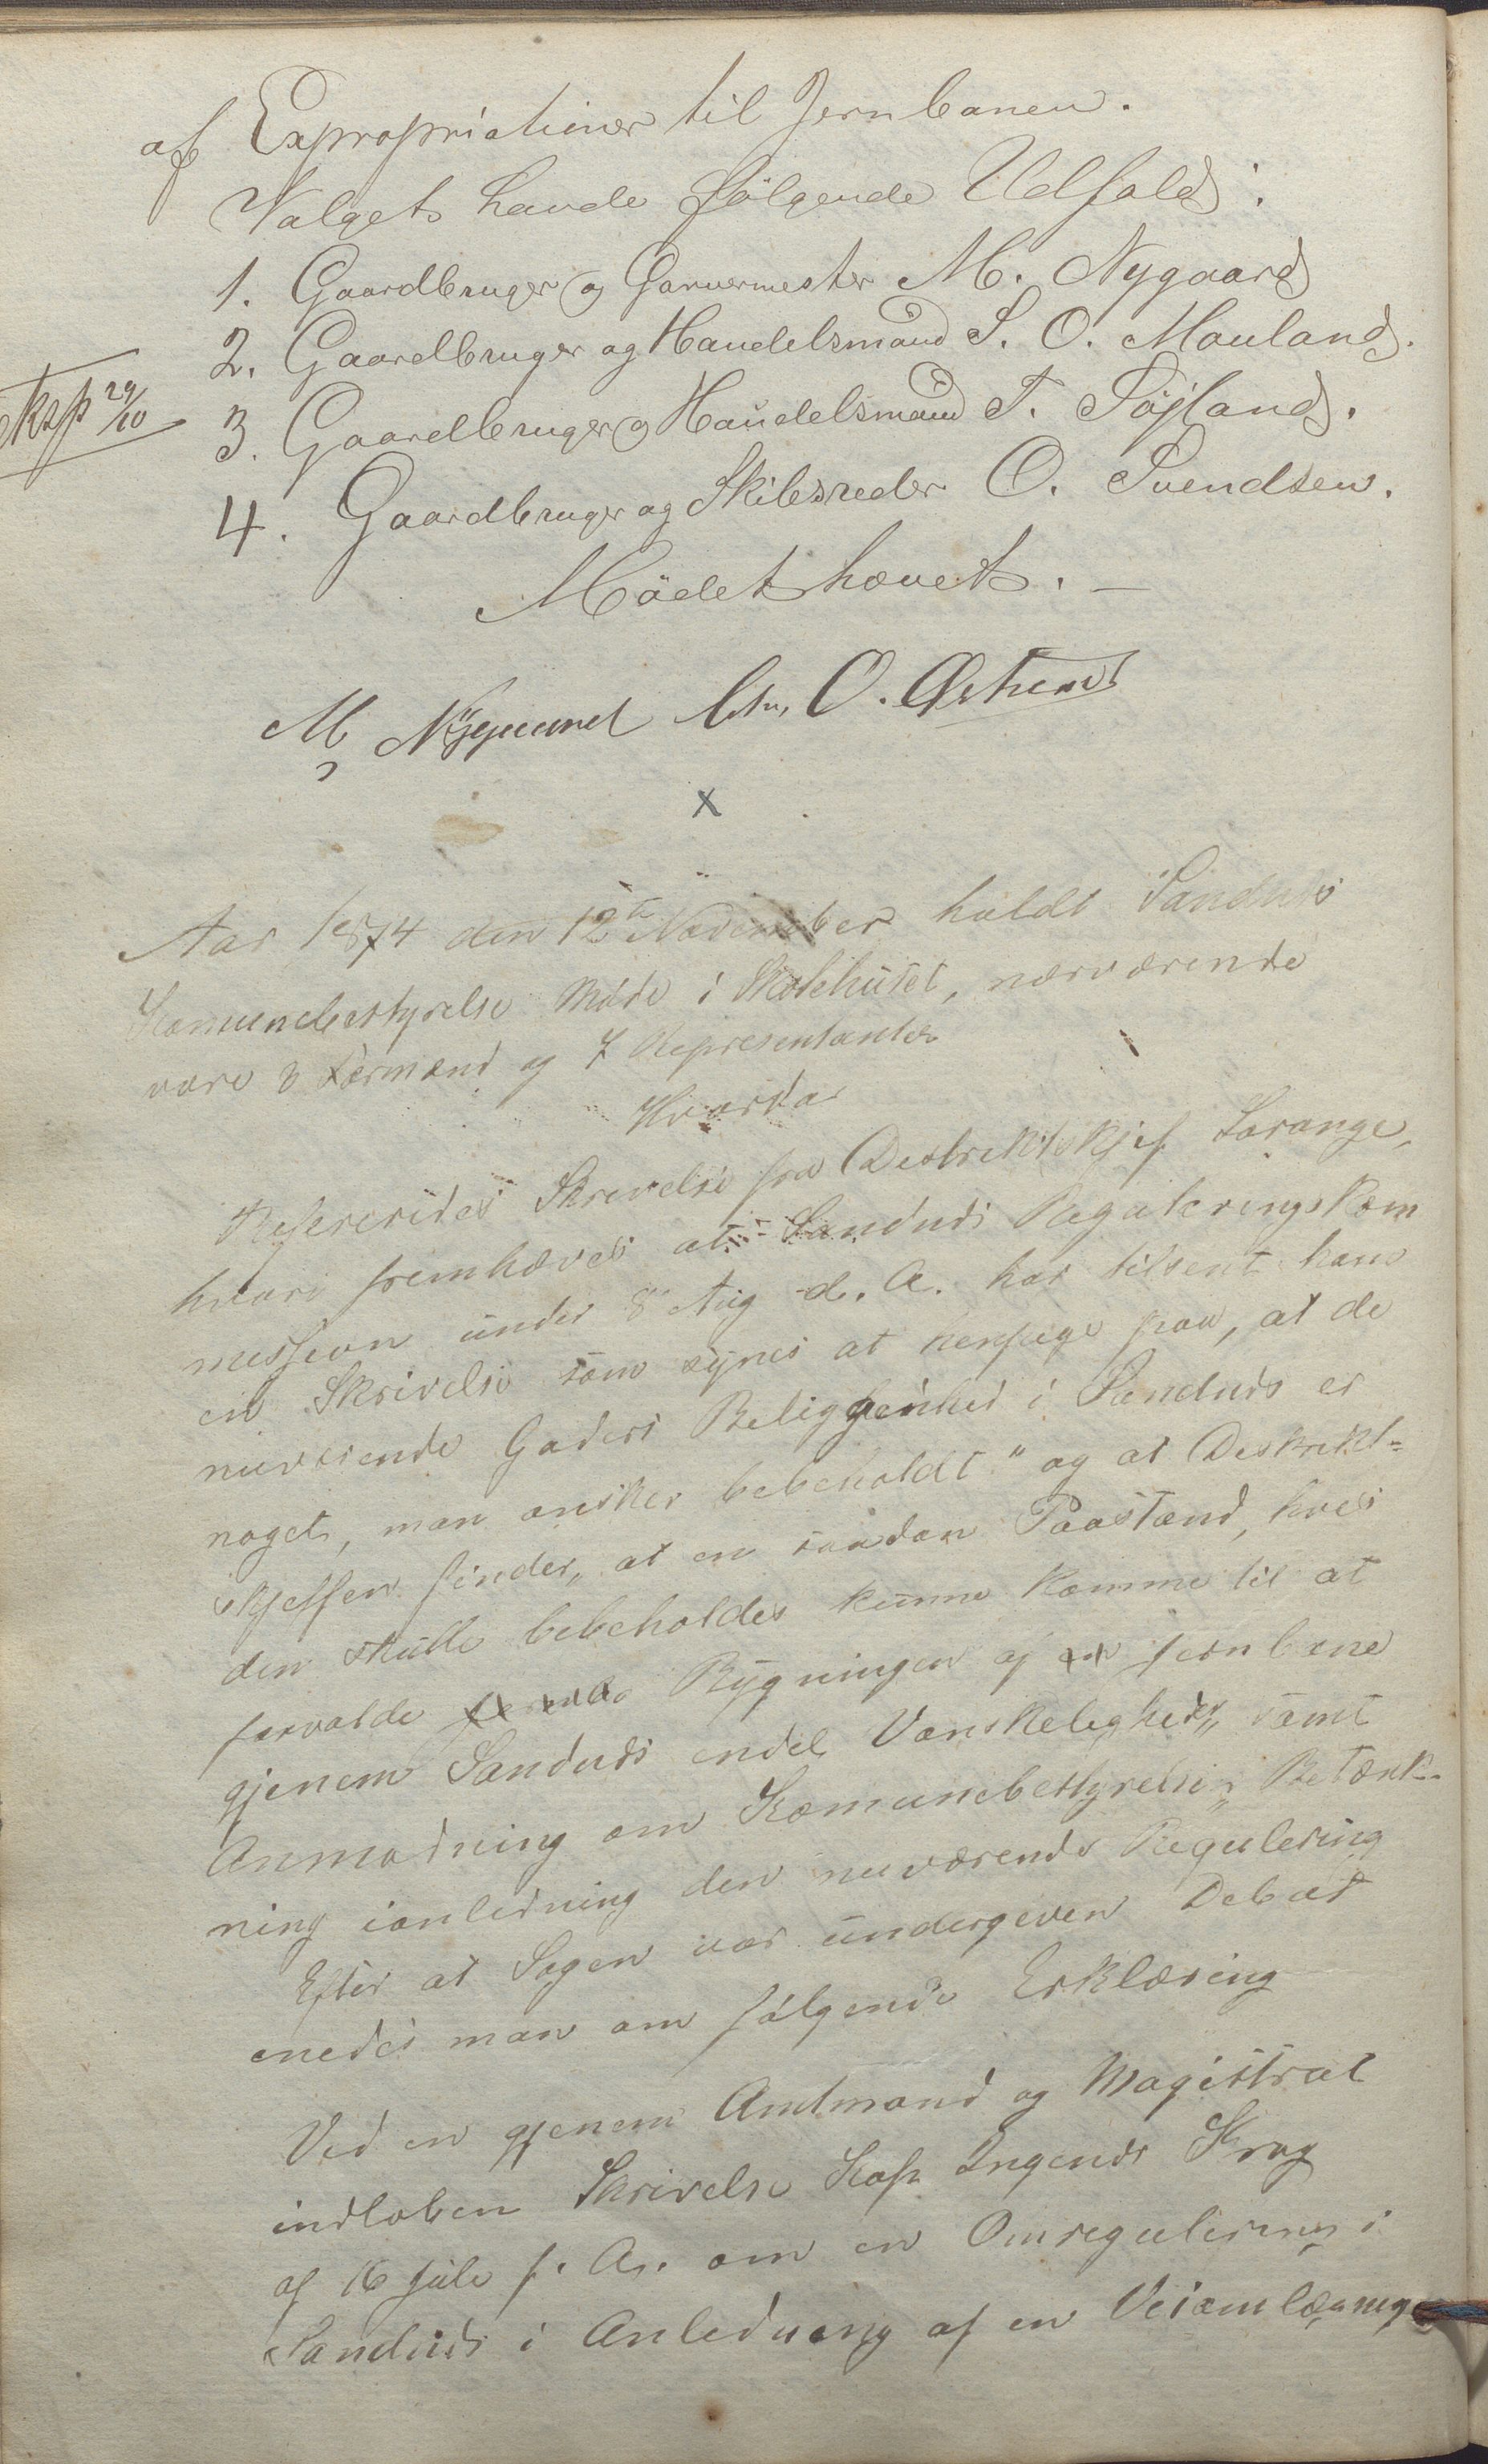 af Expropriationer til Jernbanen.
Valget havde følgende Udfald:
1. Gaardbruger og Garvermester M. Nygaard
2. Gaardbruger og Handelsmand S. O. Mauland.
Eksp 29/10
3. Gaardbruger og Handelsmand T. Søiland.
4. Gaardbruger og Skibsreder O. Svendsen.
Mødet hævet. —
M Nygaard Chr. O. Østraat
x
Aar 1874 den 12te November holdt Sandnæs
Komunebestyrelse Møde i Skolehuset, nærværende
vare 3 Formænd og 7 Representanter
Hvorda
Refereredes Skrivelse fra Destriktskjef Lorange,
hvori fremhæves at Sandnæs Reguleringskom
mission under 8 Aug d. A. har tilsent ham
en Skrivelse som synes at henpege paa, at de
nuværende Gaders Beliggenhed i Sandnæs er
noget, man ønsker bebeholdt" og at Destrikt-
skjeffen finder, at en saadan Paastand, hvis
den skulle bebeholdes kunne komme til at
forvolde Bygningen af Jernbane
gjenem Sandnæs endel Vanskelighed, samt
Anmodning om Komunebestyrelsens Betænk-
ning ianledning den nuværende Regulering
Efter at Sagen var undergiven Debat
enedes man om følgende Erklæring
Ved en gjenem Amtmand og Magistrat
indløben Skrivelse Kap Ingeniør Krag
af 16 Juli f. A. om en Omregulering i
Sandnæs i Anledning af en Veiomlægning